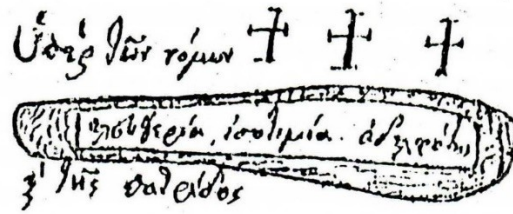 Ὑπὲρ τῶν νόμων
ἐλευθερία, ἰσοτιμία. ἀδελφότης
ϗ τῆς πατρίδος